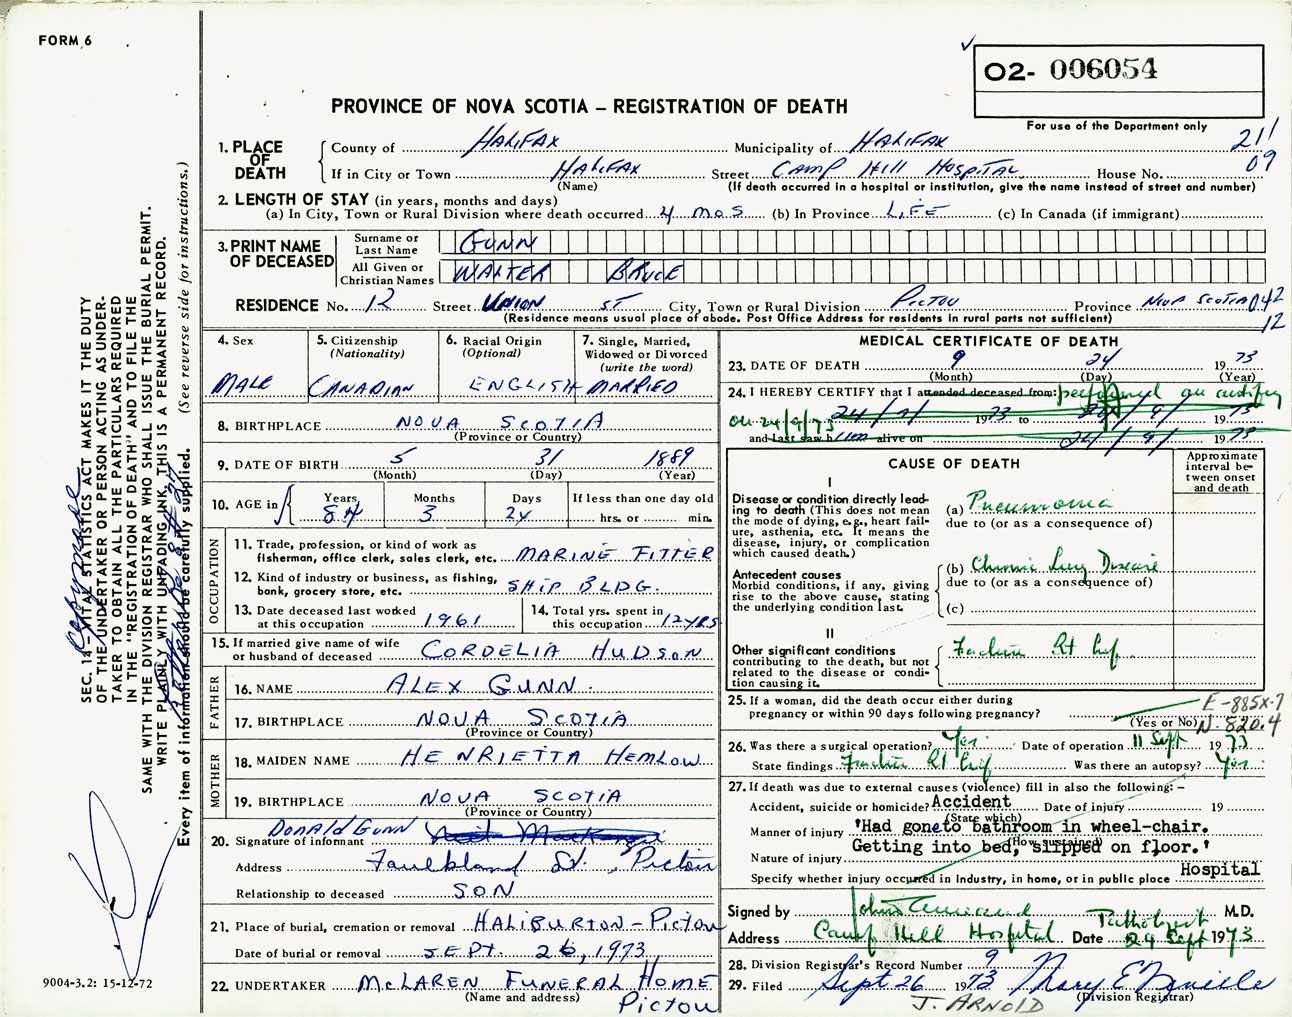 FORM 6
O2- 006054
PROVINCE OF NOVA SCOTIA – REGISTRATION OF DEATH
For use of the Department only
1. PLACE OF DEATH
County of HALIFAX Municipality of HALIFAX 211
If in City or Town HALIFAX Street CAMP HILL HOSPITAL House No. 09
(Name) (If death occurred in a hospital or institution, give the name instead of street and number)
2. LENGTH OF STAY (in years, months and days)
(a) In City, Town or Rural Division where death occurred 4 MOS (b) In Province LIFE (c) In Canada (if immigrant)
3. PRINT NAME OF DECEASED
Surname or Last Name GUNN
All Given or Christian Names WALTER BRUCE
RESIDENCE No. 12 Street UNION ST City, Town or Rural Division PICTOU Province NOVA SCOTIA 042
(Residence means usual place of abode. Post Office Address for residents in rural parts not sufficient) 12
4. Sex
MALE
5. Citizenship
(Nationality)
CANADIAN
6. Racial Origin
(Optional)
ENGLISH
7. Single, Married,
Widowed or Divorced
(write the word)
MARRIED
8. BIRTHPLACE NOVA SCOTIA
(Province or Country)
9. DATE OF BIRTH 5 31 1889
(Month) (Day) (Year)
10. AGE in
Years Months Days If less than one day old
84 3 24 hrs. or min.
OCCUPATION
11. Trade, profession, or kind of work as
fisherman, office clerk, sales clerk, etc. MARINE FITTER
12. Kind of industry or business, as fishing,
bank, grocery store, etc. SHIP BLDG.
13. Date deceased last worked
at this occupation 1961
14. Total yrs. spent in
this occupation 12 YRS
15. If married give name of wife
or husband of deceased CORDELIA HUDSON
FATHER
16. NAME ALEX GUNN.
17. BIRTHPLACE NOVA SCOTIA
(Province or Country)
MOTHER
18. MAIDEN NAME HENRIETTA HEMLOW
19. BIRTHPLACE NOVA SCOTIA
(Province or Country)
DONALD GUNN
20. Signature of informant
Address Faulkland St., Pictou
Relationship to deceased SON
21. Place of burial, cremation or removal HALIBURTON - PICTOU
Date of burial or removal SEPT. 26, 1973
22. UNDERTAKER McLAREN FUNERAL HOME
(Name and address) PICTOU
MEDICAL CERTIFICATE OF DEATH
23. DATE OF DEATH 9 24 1973
(Month) (Day) (Year)
24. I HEREBY CERTIFY that I attended deceased from: performed an autopsy
on 24/9/73 24/9/ 1973 to 24/9/ 1973
and last saw him alive on 24/9/ 1973
CAUSE OF DEATH
Approximate interval between onset and death
I
Disease or condition directly lead-
ing to death (This does not mean
the mode of dying, e.g., heart fail-
ure, asthenia, etc. It means the
disease, injury, or complication
which caused death.)
(a) Pneumonia
due to (or as a consequence of)
Antecedent causes
Morbid conditions, if any, giving
rise to the above cause, stating
the underlying condition last.
(b) Chronic Lung Disease
due to (or as a consequence of)
(c)
II
Other significant conditions
contributing to the death, but not
related to the disease or condi-
tion causing it.
Fracture Rt hip.
25. If a woman, did the death occur either during
pregnancy or within 90 days following pregnancy?
(Yes or No)
E-885X-7
N-820.4
26. Was there a surgical operation? Yes. Date of operation 11 Sept 1973
State findings Fracture Rt hip Was there an autopsy? Yes.
27. If death was due to external causes (violence) fill in also the following: –
Accident, suicide or homicide? Accident Date of injury 19
(State which)
Manner of injury 'Had gone to bathroom in wheel-chair.
(How sustained)
Getting into bed, slipped on floor.'
Nature of injury
Specify whether injury occurred in industry, in home, or in public place Hospital
Signed by Pathologist M.D.
Address Camp Hill Hospital Date 24 Sept 1973
28. Division Registrar's Record Number 9
29. Filed Sept 26 1973 Mary E
(Division Registrar)
J. ARNOLD
SEC. 14 – VITAL STATISTICS ACT MAKES IT THE DUTY
OF THE UNDERTAKER OR PERSON ACTING AS UNDER-
TAKER TO OBTAIN ALL THE PARTICULARS REQUIRED
IN THE "REGISTRATION OF DEATH" AND TO FILE THE
SAME WITH THE DIVISION REGISTRAR WHO SHALL ISSUE THE BURIAL PERMIT.
WRITE PLAINLY WITH UNFADING INK, THIS IS A PERMANENT RECORD.
Every item of information should be carefully supplied. (See reverse side for instructions.)
9004-3.2: 15-12-72